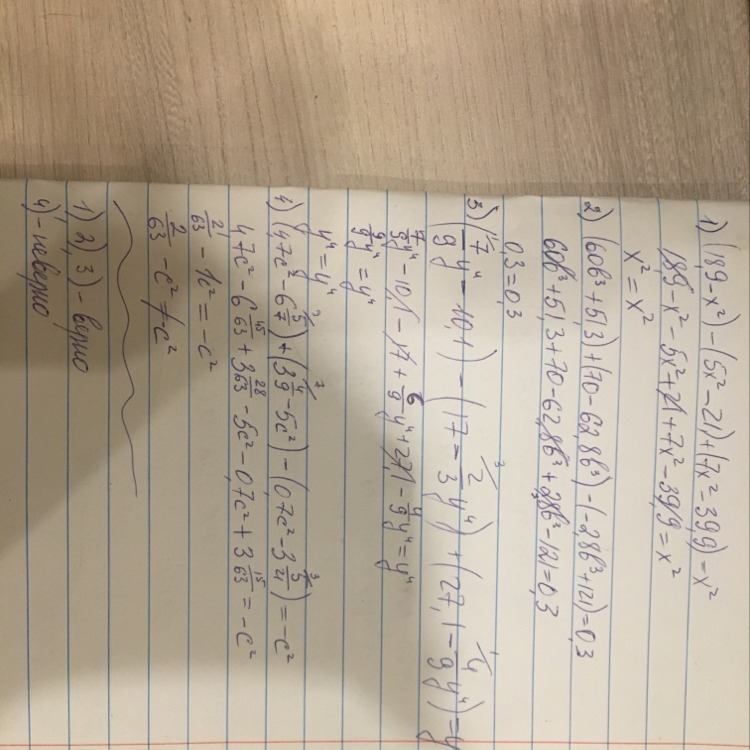 1) (18,9-x²)-(5x²-21)+(7x²-39,9)=x²
18,9-x²-5x²+21+7x²-39,9=x²
x²=x²
2) (60b³+51,3)+(70-62,8b³)-(-2,8b³+121)=0,3
60b³+51,3+70-62,8b³+2,8b³-121=0,3
0,3=0,3
3) (7/9y⁴-10,1)-(17-2/3y⁴)+(27,1-4/9y⁴)=y⁴
7/9y⁴-10,1-17+6/9y⁴+27,1-4/9y⁴=y⁴
9/9y⁴=y⁴
y⁴=y⁴
4) (4,7c²-6 5/7)+(3 4/9-5c²)-(0,7c²-3 5/21)=-c²
4,7c²-6 45/63+3 28/63-5c²-0,7c²+3 15/63=-c²
2/63-1c²=-c²
2/63-c²≠-c²
1), 2), 3)-верно
4)-неверно